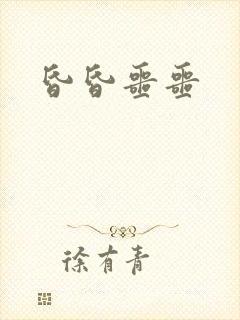 昏昏噩噩
徐有青